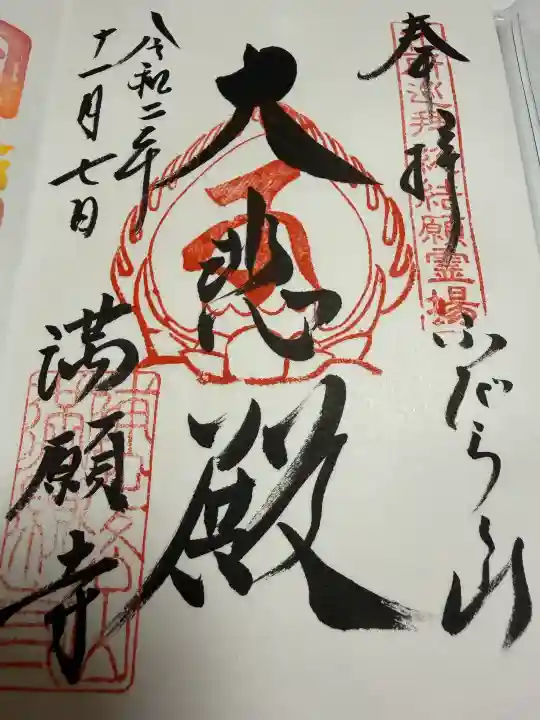 奉拝
ふだらく山
大悲殿
令和二年
十一月七日
満願寺
巡拝総結願霊場